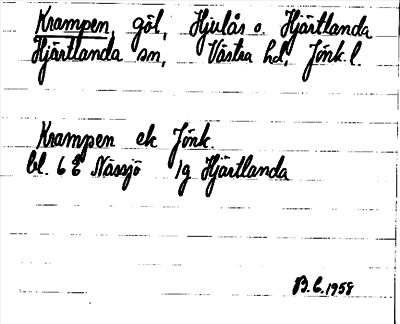 Krampen, göl, Hjulås o. Hjärtlanda
Hjärtlanda sn, Västra hd, Jönk. l.
Krampen ek Jönk.
bl. 6 E Nässjö 1g Hjärtlanda
B.E. 1958